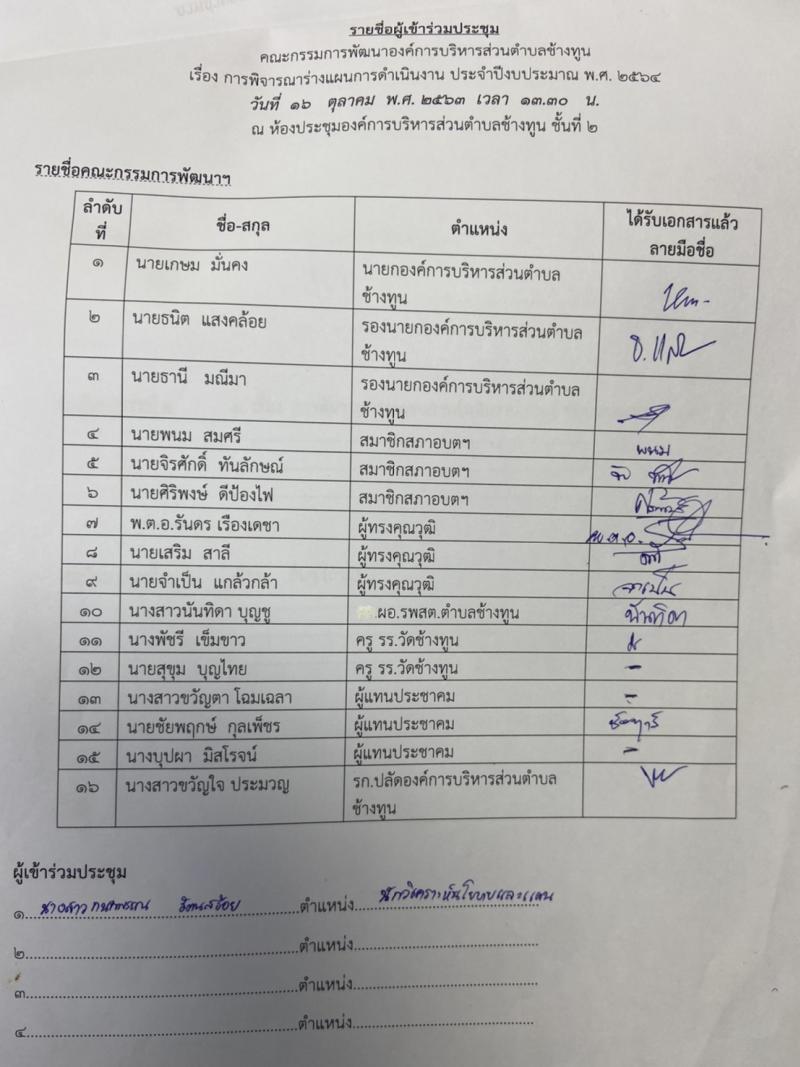 รายชื่อผู้เข้าร่วมประชุม
คณะกรรมการพัฒนาองค์การบริหารส่วนตำบลช้างทูน
เรื่อง การพิจารณาร่างแผนการดำเนินงาน ประจำปีงบประมาณ พ.ศ. ๒๕๖๔
วันที่ ๑๖ ตุลาคม พ.ศ. ๒๕๖๓ เวลา ๑๓.๓๐ น.
ณ ห้องประชุมองค์การบริหารส่วนตำบลช้างทูน ชั้นที่ ๒
รายชื่อคณะกรรมการพัฒนาฯ
ลำดับที่ ชื่อ-สกุล ตำแหน่ง ได้รับเอกสารแล้ว
ลายมือชื่อ
๑ นายเกษม มั่นคง นายกองค์การบริหารส่วนตำบล
ช้างทูน
๒ นายธนิต แสงคล้อย รองนายกองค์การบริหารส่วนตำบล
ช้างทูน
๓ นายธานี มณีมา รองนายกองค์การบริหารส่วนตำบล
ช้างทูน
๔ นายพนม สมศรี สมาชิกสภาอบตฯ พนม
๕ นายจิรศักดิ์ ทันลักษณ์ สมาชิกสภาอบตฯ
๖ นายศิริพงษ์ ดีป้องไฟ สมาชิกสภาอบตฯ
๗ พ.ต.อ.รันดร เรืองเดชา ผู้ทรงคุณวุฒิ พ.ต.อ.
๘ นายเสริม สาลี ผู้ทรงคุณวุฒิ
๙ นายจำเป็น แกล้วกล้า ผู้ทรงคุณวุฒิ จำเป็น
๑๐ นางสาวนันทิดา บุญชู ผอ.รพสต.ตำบลช้างทูน นันทิดา
๑๑ นางพัชรี เข็มขาว ครู รร.วัดช้างทูน
๑๒ นายสุขุม บุญไทย ครู รร.วัดช้างทูน -
๑๓ นางสาวขวัญตา โฉมเฉลา ผู้แทนประชาคม -
๑๔ นายชัยพฤกษ์ กุลเพ็ชร ผู้แทนประชาคม
๑๕ นางบุปผา มิสโรจน์ ผู้แทนประชาคม -
๑๖ นางสาวขวัญใจ ประมวญ รก.ปลัดองค์การบริหารส่วนตำบล
ช้างทูน
ผู้เข้าร่วมประชุม
๑. นางสาว ตำแหน่ง นักวิเคราะห์นโยบายและแผน
๒. ตำแหน่ง
๓. ตำแหน่ง
๔. ตำแหน่ง